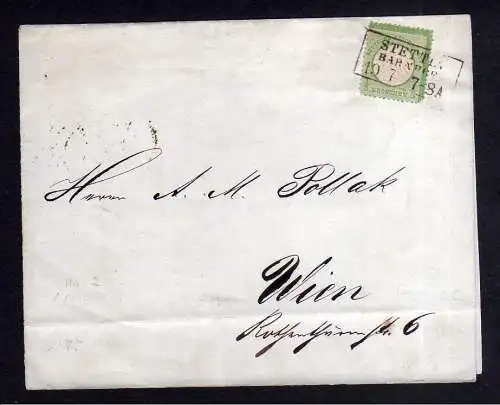 STETTIN
BAHNHOF
10 7 7-8A
Herrn A. M. Pollak
Wien
Rothenthürmstr. 6
No 2